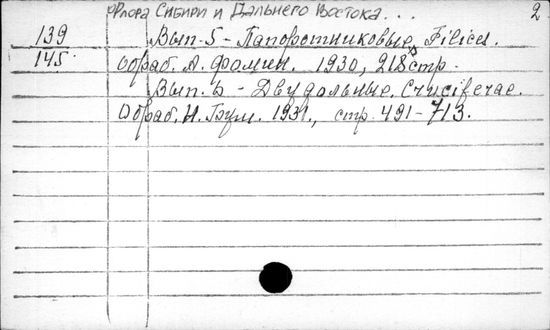 Флора Сибири и Дальнего Востока...
2
139 Вып. 5 - Папоротниковые Filices.
145 Обраб. А. Фомин. 1930, 218 стр.
Вып. 4 - Двудольные. Cruciferae.
Обраб. Н. Буш. 1931., стр. 491-713.